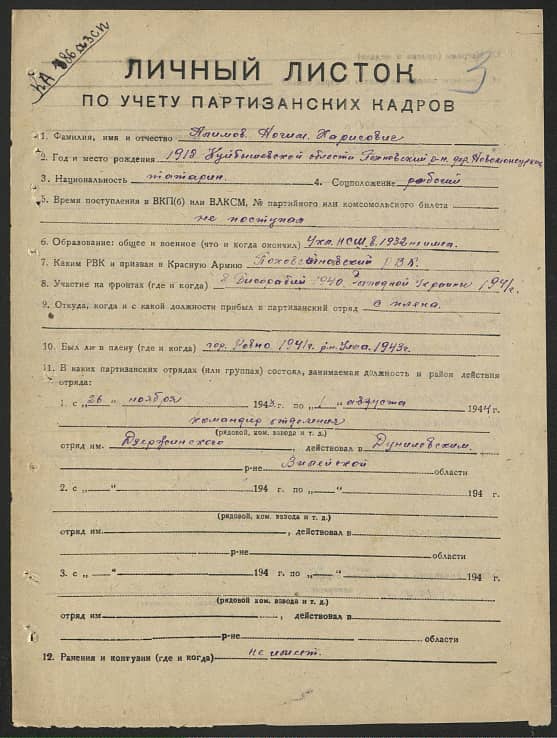 3
ЛИЧНЫЙ ЛИСТОК
ПО УЧЕТУ ПАРТИЗАНСКИХ КАДРОВ
1. Фамилия, имя и отчество Харисович
2. Год и место рождения 1918 Куйбышевской области р-н. дер.
3. Национальность татарин. 4. Соцположение рабочий
5. Время поступления в ВКП(б) или ВЛКСМ, № партийного или комсомольского билета
не поступал
6. Образование: общее и военное (что и когда окончил) НСШ в 1932
7. Каким РВК и призван в Красную Армию РВК.
8. Участие на фронтах (где и когда) 1940. Западной Украины 1941 г.
9. Откуда, когда и с какой должности прибыл к партизанский отряд с плена.
10. Был ли в плену (где и когда) гор. Ровно 1941 г. 1943 г.
11. В каких партизанских отрядах (или группах) состоял, занимаемая должность и район действия
отряда:
1. с „26“ ноября 1943 г. по „1“ августа 1944 г.
командир отделения
(рядовой, ком. взвода и т. д.)
отряд им. Дзержинского, действовал в Дуниловским
р-не Вилейской области
2. с „ “ 194 г. по „ “ 194 г.
(рядовой, ком. взвода и т. д.)
отряд им. , действовал в
р-не области
3. с „ “ 194 г. по „ “ 194 г.
(рядовой, ком. взвода и т. д.)
отряд им. , действовал в
р-не области
12. Ранения и контузии (где и когда) не имеет.